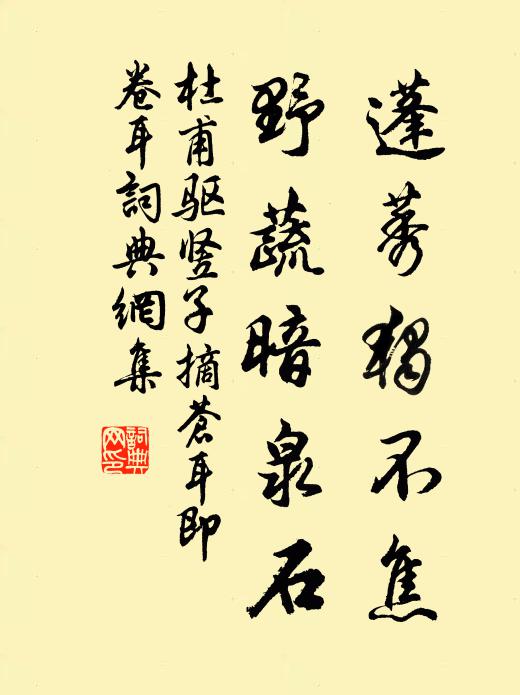 蓬莠独不焦
野蔬暗泉石
杜甫驱竖子摘蒼耳即
卷耳詞典網集
詞典
网印